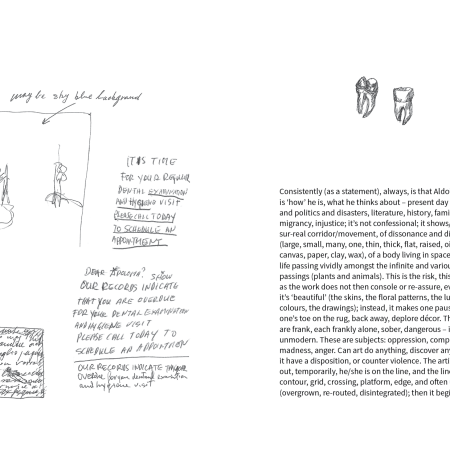 maybe sky blue background
IT IS TIME
FOR YOUR REGULAR
DENTAL EXAMINATION
AND HYGIENE VISIT
PLEASE CALL TODAY
TO SCHEDULE AN
APPOINTMENT
DEAR
OUR RECORDS INDICATE
THAT YOU ARE OVERDUE
FOR YOUR DENTAL EXAMINATION
AND HYGIENE VISIT
PLEASE CALL TODAY TO
SCHEDULE AN
OUR RECORDS INDICATE
OVERDUE for your dental
and hygiene visit
Consistently (as a statement), always, is that Aldo
is ‘how’ he is, what he thinks about – present day
and politics and disasters, literature, history, fami
migrancy, injustice; it’s not confessional; it shows,
sur-real corridor/movement, of dissonance and di
(large, small, many, one, thin, thick, flat, raised, oi
canvas, paper, clay, wax), of a body living in space
life passing vividly amongst the infinite and variou
passings (plants and animals). This is the risk, this
as the work does not then console or re-assure, ev
it’s ‘beautiful’ (the skins, the floral patterns, the lu
colours, the drawings); instead, it makes one paus
one’s toe on the rug, back away, deplore décor. Th
are frank, each frankly alone, sober, dangerous – i
unmodern. These are subjects: oppression, comp
madness, anger. Can art do anything, discover any
it have a disposition, or counter violence. The arti
out, temporarily, he/she is on the line, and the line
contour, grid, crossing, platform, edge, and often
(overgrown, re-routed, disintegrated); then it begi